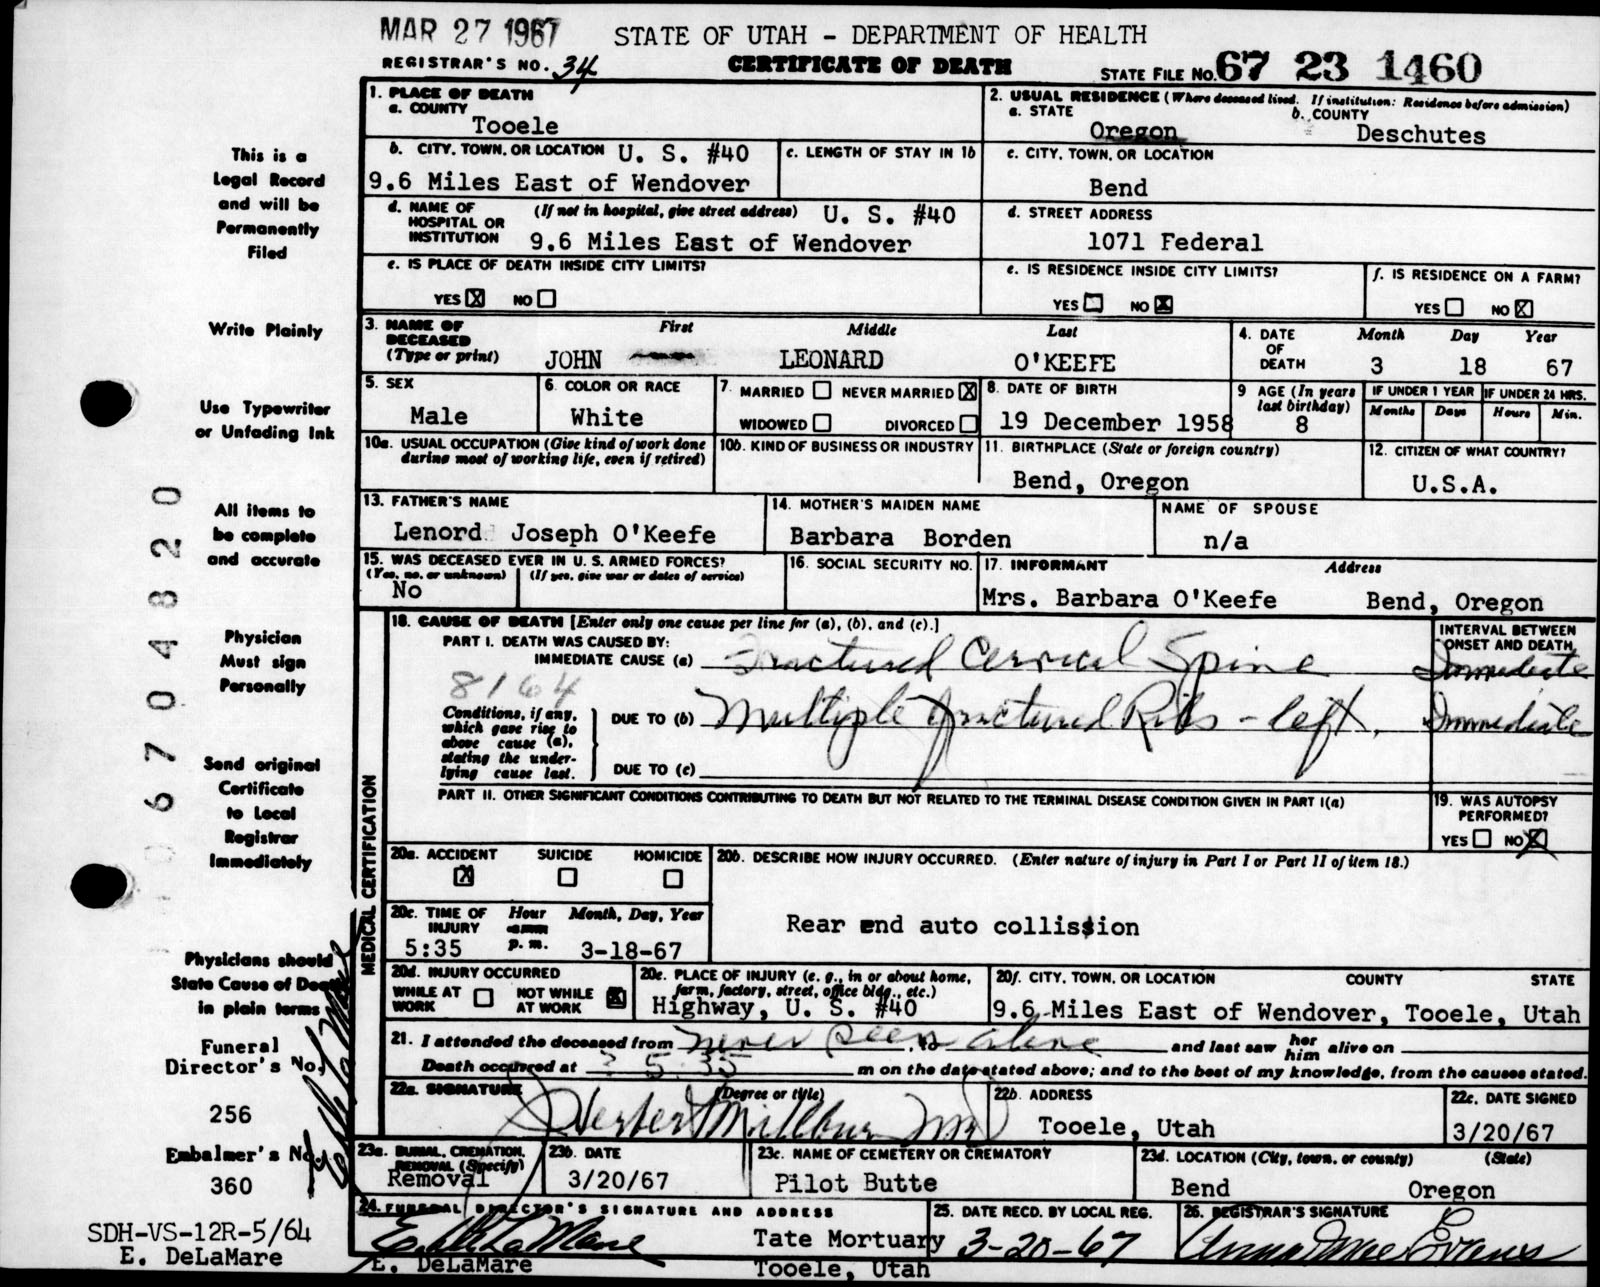 MAR 27 1967 STATE OF UTAH - DEPARTMENT OF HEALTH
REGISTRAR'S NO. 34 CERTIFICATE OF DEATH STATE FILE NO. 67 23 1460
1. PLACE OF DEATH
a. COUNTY
Tooele
2. USUAL RESIDENCE (Where deceased lived. If institution: Residence before admission)
a. STATE b. COUNTY
Oregon Deschutes
b. CITY, TOWN, OR LOCATION U. S. #40
9.6 Miles East of Wendover
c. LENGTH OF STAY IN 1b
c. CITY, TOWN, OR LOCATION
Bend
d. NAME OF HOSPITAL OR INSTITUTION (If not in hospital, give street address) U. S. #40
9.6 Miles East of Wendover
d. STREET ADDRESS
1071 Federal
e. IS PLACE OF DEATH INSIDE CITY LIMITS?
YES X NO
e. IS RESIDENCE INSIDE CITY LIMITS?
YES NO X
f. IS RESIDENCE ON A FARM?
YES NO X
3. NAME OF DECEASED (Type or print)
First Middle Last
JOHN LEONARD O'KEEFE
4. DATE OF DEATH Month Day Year
3 18 67
5. SEX
Male
6. COLOR OR RACE
White
7. MARRIED NEVER MARRIED X
WIDOWED DIVORCED
8. DATE OF BIRTH
19 December 1958
9 AGE (In years last birthday)
8
IF UNDER 1 YEAR IF UNDER 24 HRS.
Months Days Hours Min.
10a. USUAL OCCUPATION (Give kind of work done during most of working life, even if retired)
10b. KIND OF BUSINESS OR INDUSTRY
11. BIRTHPLACE (State or foreign country)
Bend, Oregon
12. CITIZEN OF WHAT COUNTRY?
U.S.A.
13. FATHER'S NAME
Lenord Joseph O'Keefe
14. MOTHER'S MAIDEN NAME
Barbara Borden
NAME OF SPOUSE
n/a
15. WAS DECEASED EVER IN U. S. ARMED FORCES?
(Yes, no, or unknown) (If yes, give war or dates of service)
No
16. SOCIAL SECURITY NO.
17. INFORMANT Address
Mrs. Barbara O'Keefe Bend, Oregon
MEDICAL CERTIFICATION
18. CAUSE OF DEATH [Enter only one cause per line for (a), (b), and (c).]
PART I. DEATH WAS CAUSED BY:
IMMEDIATE CAUSE (a) Fractured Cervical Spine
INTERVAL BETWEEN ONSET AND DEATH
Immediate
8164
Conditions, if any, which gave rise to above cause (a), stating the underlying cause last.
DUE TO (b) Multiple fractured Ribs - left. Immediate
DUE TO (c)
PART II. OTHER SIGNIFICANT CONDITIONS CONTRIBUTING TO DEATH BUT NOT RELATED TO THE TERMINAL DISEASE CONDITION GIVEN IN PART I(a)
19. WAS AUTOPSY PERFORMED?
YES NO X
20a. ACCIDENT SUICIDE HOMICIDE
X
20b. DESCRIBE HOW INJURY OCCURRED. (Enter nature of injury in Part I or Part II of item 18.)
Rear end auto collission
20c. TIME OF INJURY Hour Month, Day, Year
5:35 p. m. 3-18-67
20d. INJURY OCCURRED
WHILE AT WORK NOT WHILE AT WORK X
20e. PLACE OF INJURY (e. g., in or about home, farm, factory, street, office bldg., etc.)
Highway, U. S. #40
20f. CITY, TOWN, OR LOCATION COUNTY STATE
9.6 Miles East of Wendover, Tooele, Utah
21. I attended the deceased from never seen to alive and last saw her him alive on
Death occurred at ? 5:35 m on the date stated above; and to the best of my knowledge, from the causes stated.
22a. SIGNATURE (Degree or title)
22b. ADDRESS
Tooele, Utah
22c. DATE SIGNED
3/20/67
23a. BURIAL, CREMATION, REMOVAL (Specify)
Removal
23b. DATE
3/20/67
23c. NAME OF CEMETERY OR CREMATORY
Pilot Butte
23d. LOCATION (City, town, or county) (State)
Bend Oregon
24. FUNERAL DIRECTOR'S SIGNATURE AND ADDRESS
E. DeLaMare
Tate Mortuary
E. DeLaMare Tooele, Utah
25. DATE RECD. BY LOCAL REG.
3-20-67
26. REGISTRAR'S SIGNATURE
Anna Mae Evans
This is a
Legal Record
and will be
Permanently
Filed
Write Plainly
Use Typewriter
or Unfading Ink
All items to
be complete
and accurate
Physician
Must sign
Personally
Send original
Certificate
to Local
Registrar
Immediately
Physicians should
State Cause of Death
in plain terms
Funeral
Director's No.
256
Embalmer's No.
360
SDH-VS-12R-5/64
E. DeLaMare
06704820